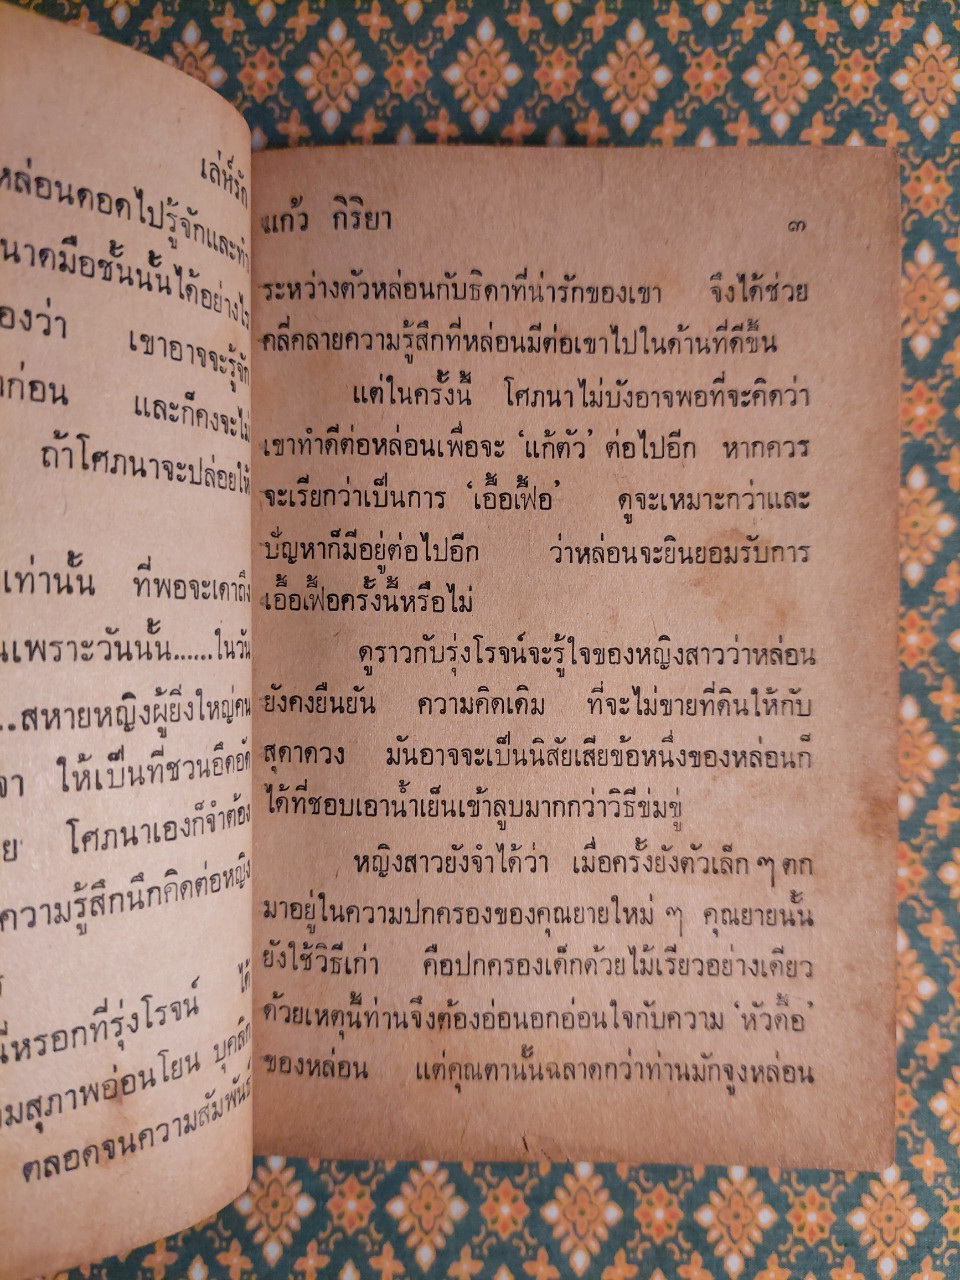 เล่ห์รัก
หล่อนดอดไปรู้จักและทำ
นาดมือชั้นนั้นได้อย่างไร
องว่า เขาอาจจะรู้จัก
ก่อน และก็คงจะไม่
ถ้าโศภนาจะปล่อยให้
เท่านั้น ที่พอจะเดาถึง
นเพราะวันนั้น......ในวัน
..สหายหญิงผู้ยิ่งใหญ่คน
จา ให้เป็นที่ชวนอึดอัด
ย โศภนาเองก็จำต้อง
ความรู้สึกนึกคิดต่อหญิง
ได้
นี่หรอกที่รุ่งโรจน์
มสุภาพอ่อนโยน บุคลิก
ตลอดจนความสัมพันธ์
แก้ว กิริยา ๓
ระหว่างตัวหล่อนกับธิดาที่น่ารักของเขา จึงได้ช่วย
คลี่คลายความรู้สึกที่หล่อนมีต่อเขาไปในด้านที่ดีขึ้น
แต่ในครั้งนี้ โศภนาไม่บังอาจพอที่จะคิดว่า
เขาทำดีต่อหล่อนเพื่อจะ ‘แก้ตัว’ ต่อไปอีก หากควร
จะเรียกว่าเป็นการ ‘เอื้อเฟื้อ’ ดูจะเหมาะกว่าและ
ปัญหาก็มีอยู่ต่อไปอีก ว่าหล่อนจะยินยอมรับการ
เอื้อเฟื้อครั้งนี้หรือไม่
ดูราวกับรุ่งโรจน์จะรู้ใจของหญิงสาวว่าหล่อน
ยังคงยืนยัน ความคิดเดิม ที่จะไม่ขายที่ดินให้กับ
สุดาดวง มันอาจจะเป็นนิสัยเสียข้อหนึ่งของหล่อนก็
ได้ที่ชอบเอาน้ำเย็นเข้าลูบมากกว่าวิธีข่มขู่
หญิงสาวยังจำได้ว่า เมื่อครั้งยังตัวเล็ก ๆ ตก
มาอยู่ในความปกครองของคุณยายใหม่ ๆ คุณยายนั้น
ยังใช้วิธีเก่า คือปกครองเด็กด้วยไม้เรียวอย่างเดียว
ด้วยเหตุนี้ท่านจึงต้องอ่อนอกอ่อนใจกับความ ‘หัวดื้อ’
ของหล่อน แต่คุณตานั้นฉลาดกว่าท่านมักจูงหล่อน